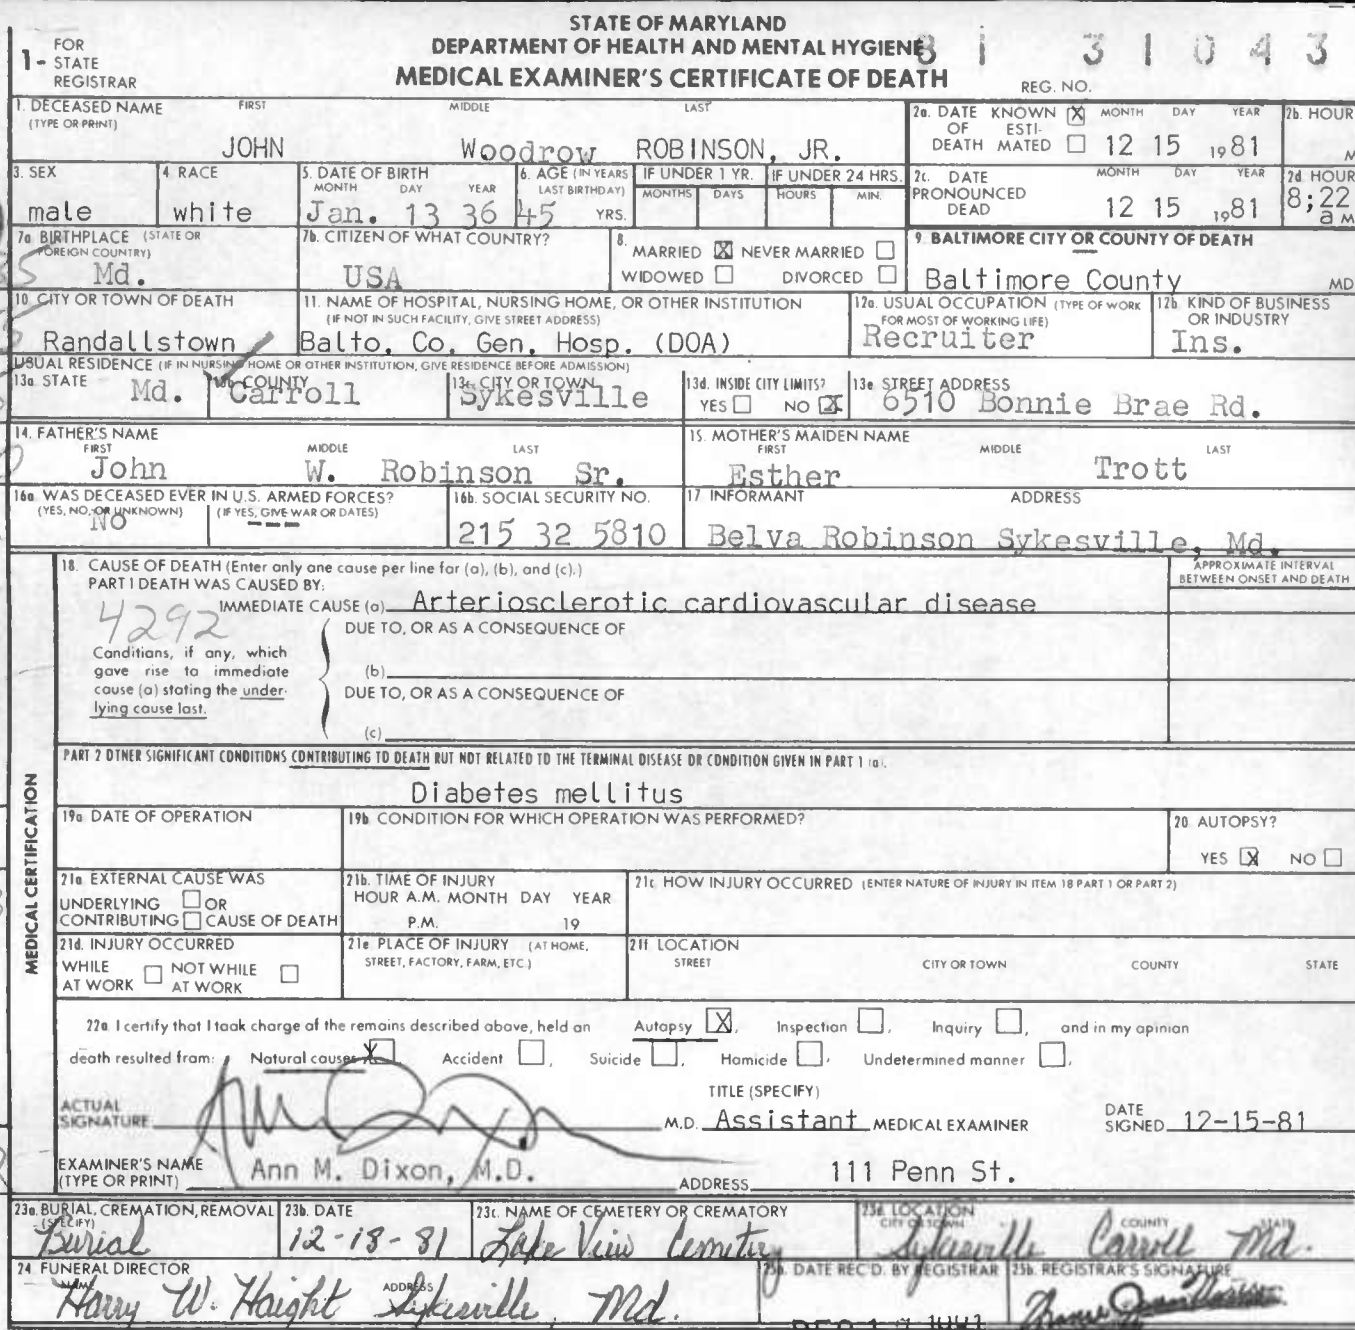 STATE OF MARYLAND
DEPARTMENT OF HEALTH AND MENTAL HYGIENE
MEDICAL EXAMINER'S CERTIFICATE OF DEATH
1 - FOR STATE REGISTRAR
REG. NO. 81 31043
1. DECEASED NAME (TYPE OR PRINT) FIRST MIDDLE LAST
JOHN Woodrow ROBINSON, JR.
2a. DATE OF DEATH KNOWN [X] ESTIMATED [ ] MONTH DAY YEAR
12 15 1981
2b. HOUR M
3. SEX
male
4. RACE
white
5. DATE OF BIRTH MONTH DAY YEAR
Jan. 13 36
6. AGE (IN YEARS LAST BIRTHDAY)
45 YRS.
IF UNDER 1 YR. MONTHS DAYS
IF UNDER 24 HRS. HOURS MIN.
2c. DATE PRONOUNCED DEAD MONTH DAY YEAR
12 15 1981
2d HOUR
8;22 a M
7a BIRTHPLACE (STATE OR FOREIGN COUNTRY)
Md.
7b. CITIZEN OF WHAT COUNTRY?
USA
8. MARRIED [X] NEVER MARRIED [ ]
WIDOWED [ ] DIVORCED [ ]
9. BALTIMORE CITY OR COUNTY OF DEATH
Baltimore County MD
10 CITY OR TOWN OF DEATH
Randallstown
11. NAME OF HOSPITAL, NURSING HOME, OR OTHER INSTITUTION
(IF NOT IN SUCH FACILITY, GIVE STREET ADDRESS)
Balto. Co. Gen. Hosp. (DOA)
12a. USUAL OCCUPATION (TYPE OF WORK FOR MOST OF WORKING LIFE)
Recruiter
12b. KIND OF BUSINESS OR INDUSTRY
Ins.
USUAL RESIDENCE (IF IN NURSING HOME OR OTHER INSTITUTION, GIVE RESIDENCE BEFORE ADMISSION)
13a. STATE Md.
13b. COUNTY Carroll
13c. CITY OR TOWN Sykesville
13d. INSIDE CITY LIMITS? YES [ ] NO [X]
13e STREET ADDRESS 6510 Bonnie Brae Rd.
14. FATHER'S NAME FIRST MIDDLE LAST
John W. Robinson Sr.
15. MOTHER'S MAIDEN NAME FIRST MIDDLE LAST
Esther Trott
16a. WAS DECEASED EVER IN U.S. ARMED FORCES?
(YES, NO, OR UNKNOWN) (IF YES, GIVE WAR OR DATES)
No ---
16b. SOCIAL SECURITY NO.
215 32 5810
17 INFORMANT ADDRESS
Belva Robinson Sykesville, Md.
18. CAUSE OF DEATH (Enter only one cause per line for (a), (b), and (c).)
PART I DEATH WAS CAUSED BY:
APPROXIMATE INTERVAL BETWEEN ONSET AND DEATH
IMMEDIATE CAUSE (a) Arteriosclerotic cardiovascular disease
4292
DUE TO, OR AS A CONSEQUENCE OF
Conditions, if any, which gave rise to immediate cause (a) stating the underlying cause last.
(b)
DUE TO, OR AS A CONSEQUENCE OF
(c)
PART 2 OTHER SIGNIFICANT CONDITIONS CONTRIBUTING TO DEATH BUT NOT RELATED TO THE TERMINAL DISEASE OR CONDITION GIVEN IN PART 1 (a).
Diabetes mellitus
MEDICAL CERTIFICATION
19a DATE OF OPERATION
19b CONDITION FOR WHICH OPERATION WAS PERFORMED?
20. AUTOPSY?
YES [X] NO [ ]
21a. EXTERNAL CAUSE WAS
UNDERLYING [ ] OR
CONTRIBUTING [ ] CAUSE OF DEATH
21b. TIME OF INJURY
HOUR A.M. MONTH DAY YEAR
P.M. 19
21c HOW INJURY OCCURRED (ENTER NATURE OF INJURY IN ITEM 18 PART 1 OR PART 2)
21d. INJURY OCCURRED
WHILE AT WORK [ ] NOT WHILE AT WORK [ ]
21e PLACE OF INJURY (AT HOME, STREET, FACTORY, FARM, ETC.)
21f LOCATION
STREET CITY OR TOWN COUNTY STATE
22a. I certify that I took charge of the remains described above, held an Autopsy [X], Inspection [ ], Inquiry [ ], and in my opinion
death resulted from: Natural causes [X] Accident [ ], Suicide [ ], Homicide [ ], Undetermined manner [ ],
TITLE (SPECIFY)
ACTUAL SIGNATURE M.D. Assistant MEDICAL EXAMINER
DATE SIGNED 12-15-81
EXAMINER'S NAME (TYPE OR PRINT) Ann M. Dixon, M.D.
ADDRESS 111 Penn St.
23a. BURIAL, CREMATION, REMOVAL (SPECIFY)
Burial
23b. DATE
12-18-81
23c. NAME OF CEMETERY OR CREMATORY
Lake View Cemetery
23d LOCATION CITY OR TOWN COUNTY STATE
Sykesville Carroll Md.
24 FUNERAL DIRECTOR NAME ADDRESS
Harry W. Haight Sykesville, Md.
25a. DATE REC'D. BY REGISTRAR
25b. REGISTRAR'S SIGNATURE